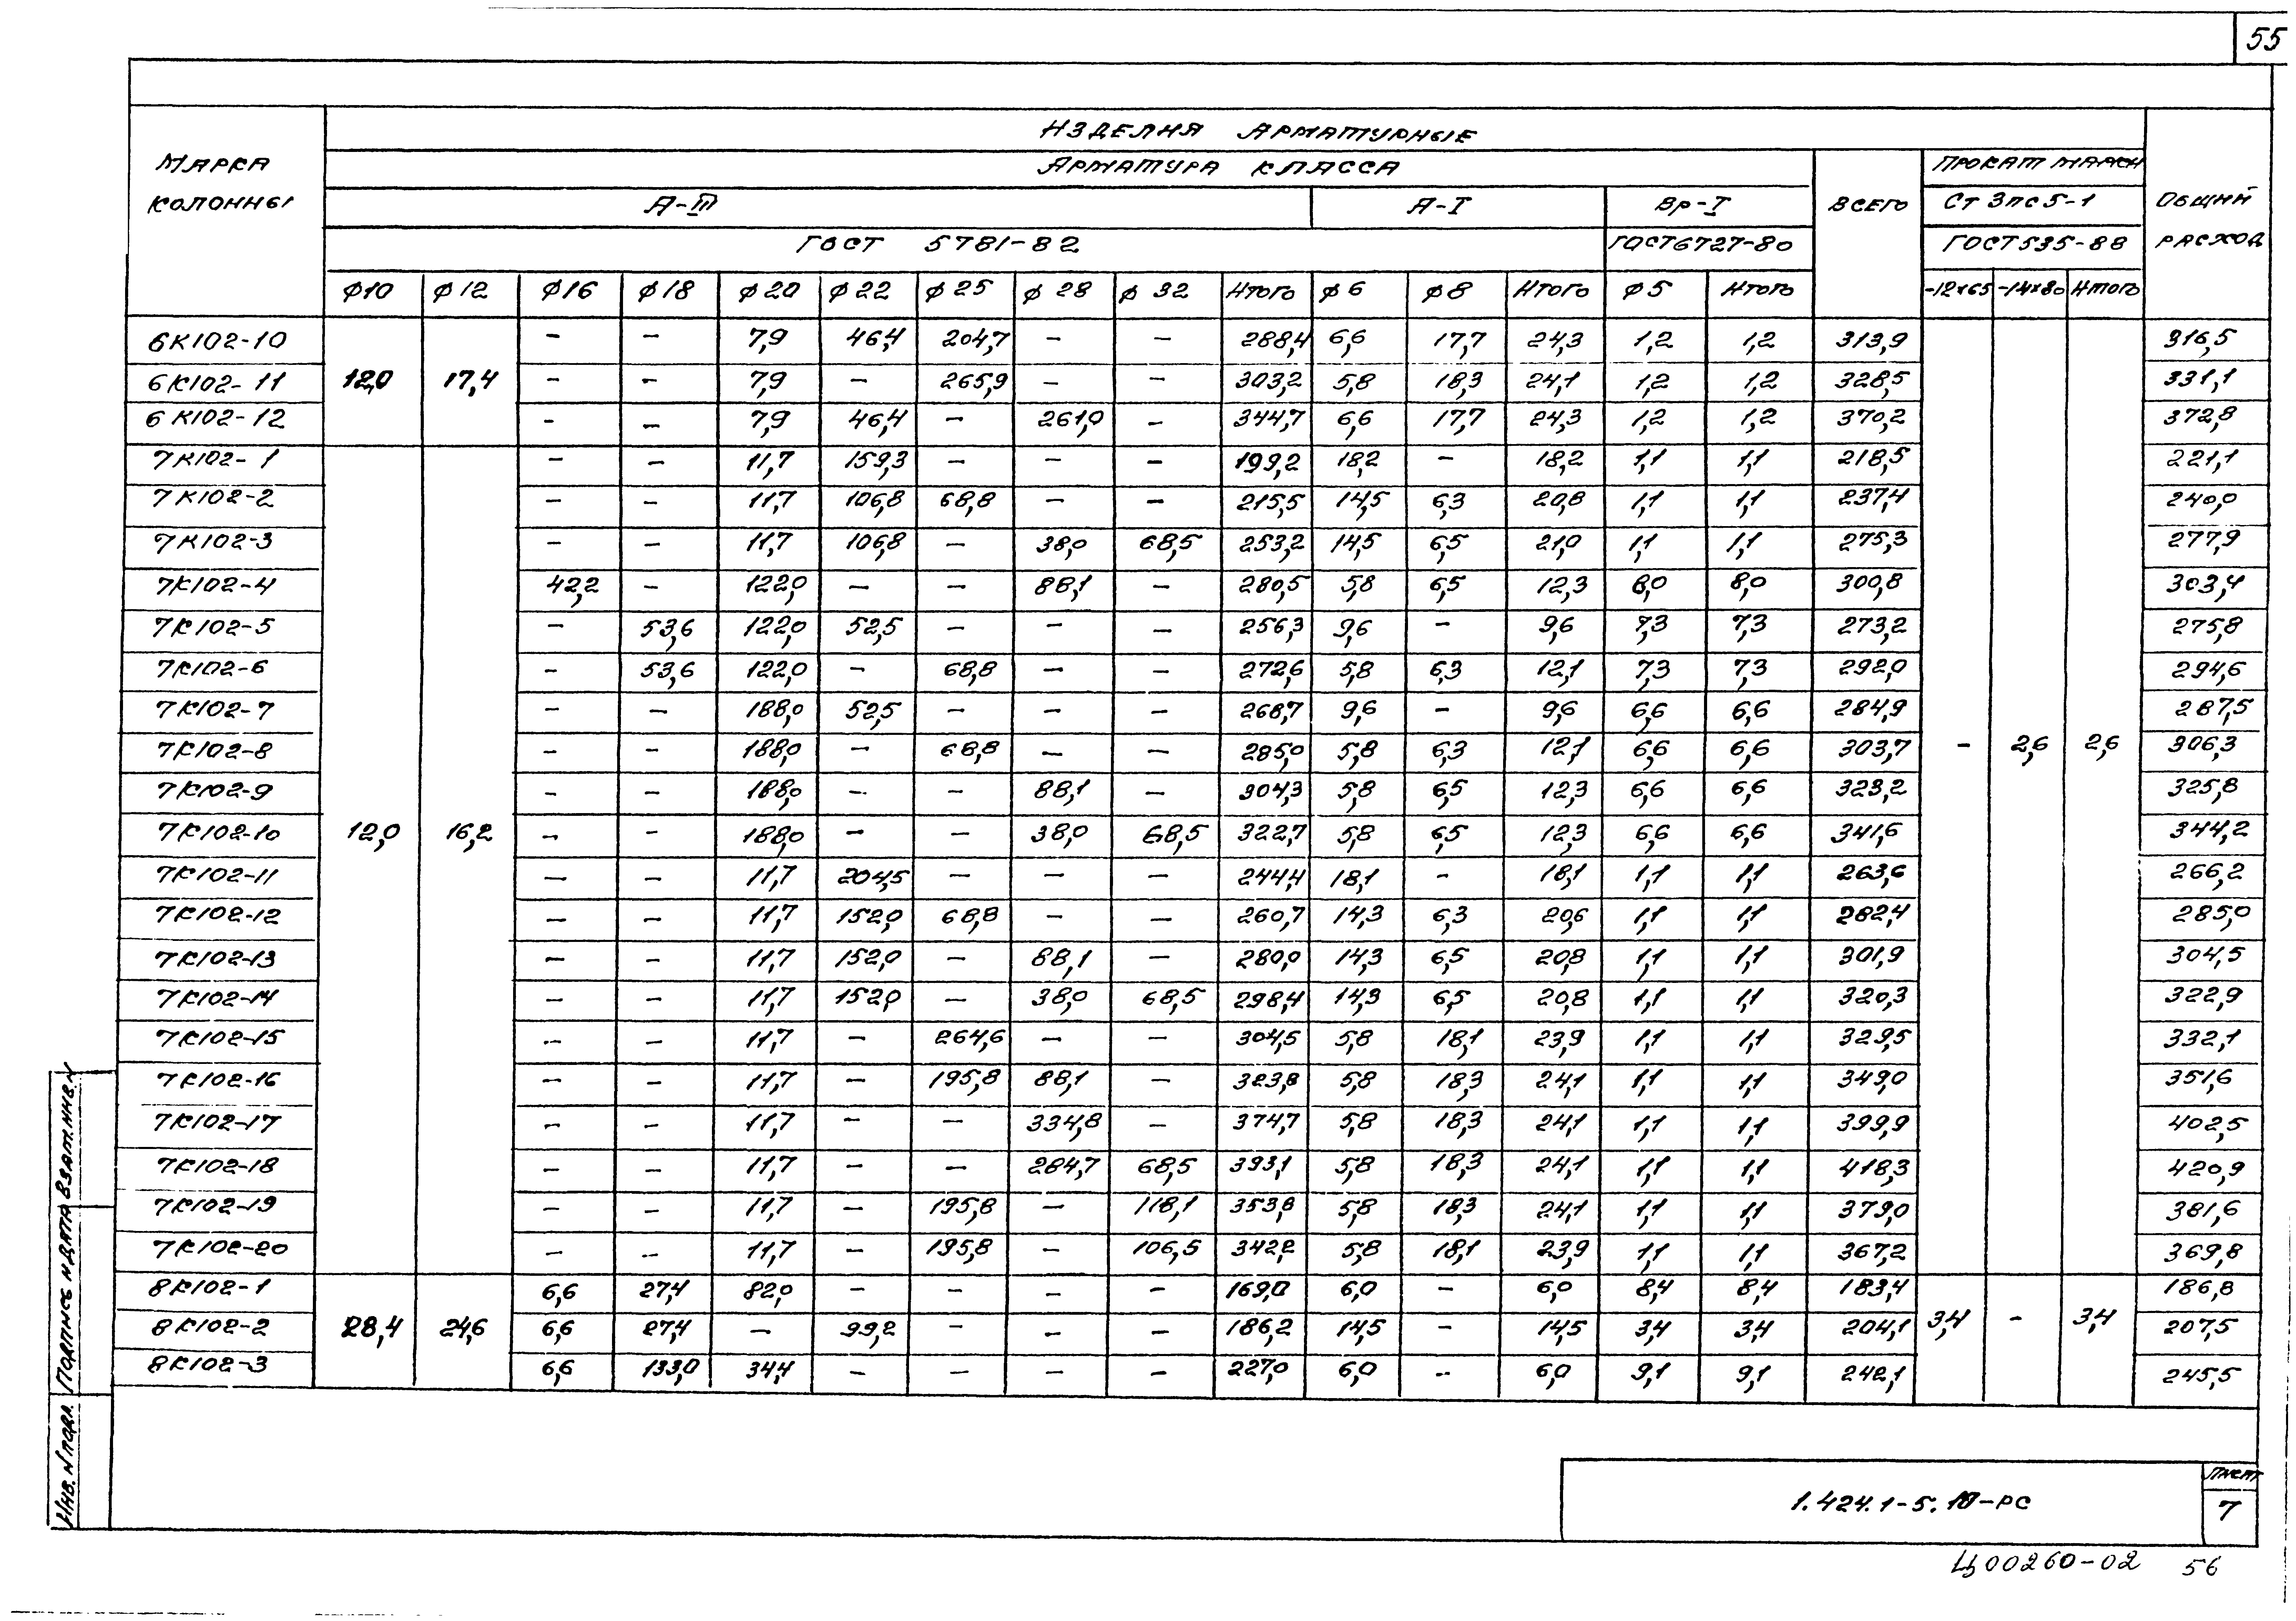 55
МАРКА КОЛОННЫ
ИЗДЕЛИЯ АРМАТУРНЫЕ
АРМАТУРА КЛАССА
ВСЕГО
ПРОКАТ МАРКИ
ОБЩИЙ РАСХОД
А-III А-I Вр-I Ст 3пс 5-1
ГОСТ 5781-82 ГОСТ 6727-80 ГОСТ 535-88
φ10 φ12 φ16 φ18 φ20 φ22 φ25 φ28 φ32 Итого φ6 φ8 Итого φ5 Итого -12×65 -14×80 Итого
6К102-10 - - 7,9 46,4 204,7 - - 288,4 6,6 17,7 24,3 1,2 1,2 313,9 316,5
6К102-11 12,0 17,4 - - 7,9 - 265,9 - - 303,2 5,8 18,3 24,1 1,2 1,2 328,5 331,1
6К102-12 - - 7,9 46,4 - 261,0 - 344,7 6,6 17,7 24,3 1,2 1,2 370,2 372,8
7К102-1 - - 11,7 159,3 - - - 199,2 18,2 - 18,2 1,1 1,1 218,5 221,1
7К102-2 - - 11,7 106,8 68,8 - - 215,5 14,5 6,3 20,8 1,1 1,1 237,4 240,0
7К102-3 - - 11,7 106,8 - 38,0 68,5 253,2 14,5 6,5 21,0 1,1 1,1 275,3 277,9
7К102-4 42,2 - 122,0 - - 88,1 - 280,5 5,8 6,5 12,3 8,0 8,0 300,8 303,4
7К102-5 - 53,6 122,0 52,5 - - - 256,3 9,6 - 9,6 7,3 7,3 273,2 275,8
7К102-6 - 53,6 122,0 - 68,8 - - 272,6 5,8 6,3 12,1 7,3 7,3 292,0 294,6
7К102-7 - - 188,0 52,5 - - - 268,7 9,6 - 9,6 6,6 6,6 284,9 287,5
7К102-8 - - 188,0 - 68,8 - - 285,0 5,8 6,3 12,1 6,6 6,6 303,7 - 2,6 2,6 306,3
7К102-9 - - 188,0 - - 88,1 - 304,3 5,8 6,5 12,3 6,6 6,6 323,2 325,8
7К102-10 12,0 16,2 - - 188,0 - - 38,0 68,5 322,7 5,8 6,5 12,3 6,6 6,6 341,6 344,2
7К102-11 - - 11,7 204,5 - - - 244,4 18,1 - 18,1 1,1 1,1 263,6 266,2
7К102-12 - - 11,7 152,0 68,8 - - 260,7 14,3 6,3 20,6 1,1 1,1 282,4 285,0
7К102-13 - - 11,7 152,0 - 88,1 - 280,0 14,3 6,5 20,8 1,1 1,1 301,9 304,5
7К102-14 - - 11,7 152,0 - 38,0 68,5 298,4 14,3 6,5 20,8 1,1 1,1 320,3 322,9
7К102-15 - - 11,7 - 264,6 - - 304,5 5,8 18,1 23,9 1,1 1,1 329,5 332,1
7К102-16 - - 11,7 - 195,8 88,1 - 323,8 5,8 18,3 24,1 1,1 1,1 349,0 351,6
7К102-17 - - 11,7 - - 334,8 - 374,7 5,8 18,3 24,1 1,1 1,1 399,9 402,5
7К102-18 - - 11,7 - - 284,7 68,5 393,1 5,8 18,3 24,1 1,1 1,1 418,3 420,9
7К102-19 - - 11,7 - 195,8 - 118,1 353,8 5,8 18,3 24,1 1,1 1,1 379,0 381,6
7К102-20 - - 11,7 - 195,8 - 106,5 342,2 5,8 18,1 23,9 1,1 1,1 367,2 369,8
8К102-1 6,6 27,4 82,0 - - - - 169,0 6,0 - 6,0 8,4 8,4 183,4 186,8
8К102-2 28,4 24,6 6,6 27,4 - 99,2 - - - 186,2 14,5 - 14,5 3,4 3,4 204,1 3,4 - 3,4 207,5
8К102-3 6,6 133,0 34,4 - - - - 227,0 6,0 - 6,0 9,1 9,1 242,1 245,5
Инв. N подл. Подпись и дата Взам. инв. N
1.424.1-5. -РС
Лист
7
Ц00260-02 56